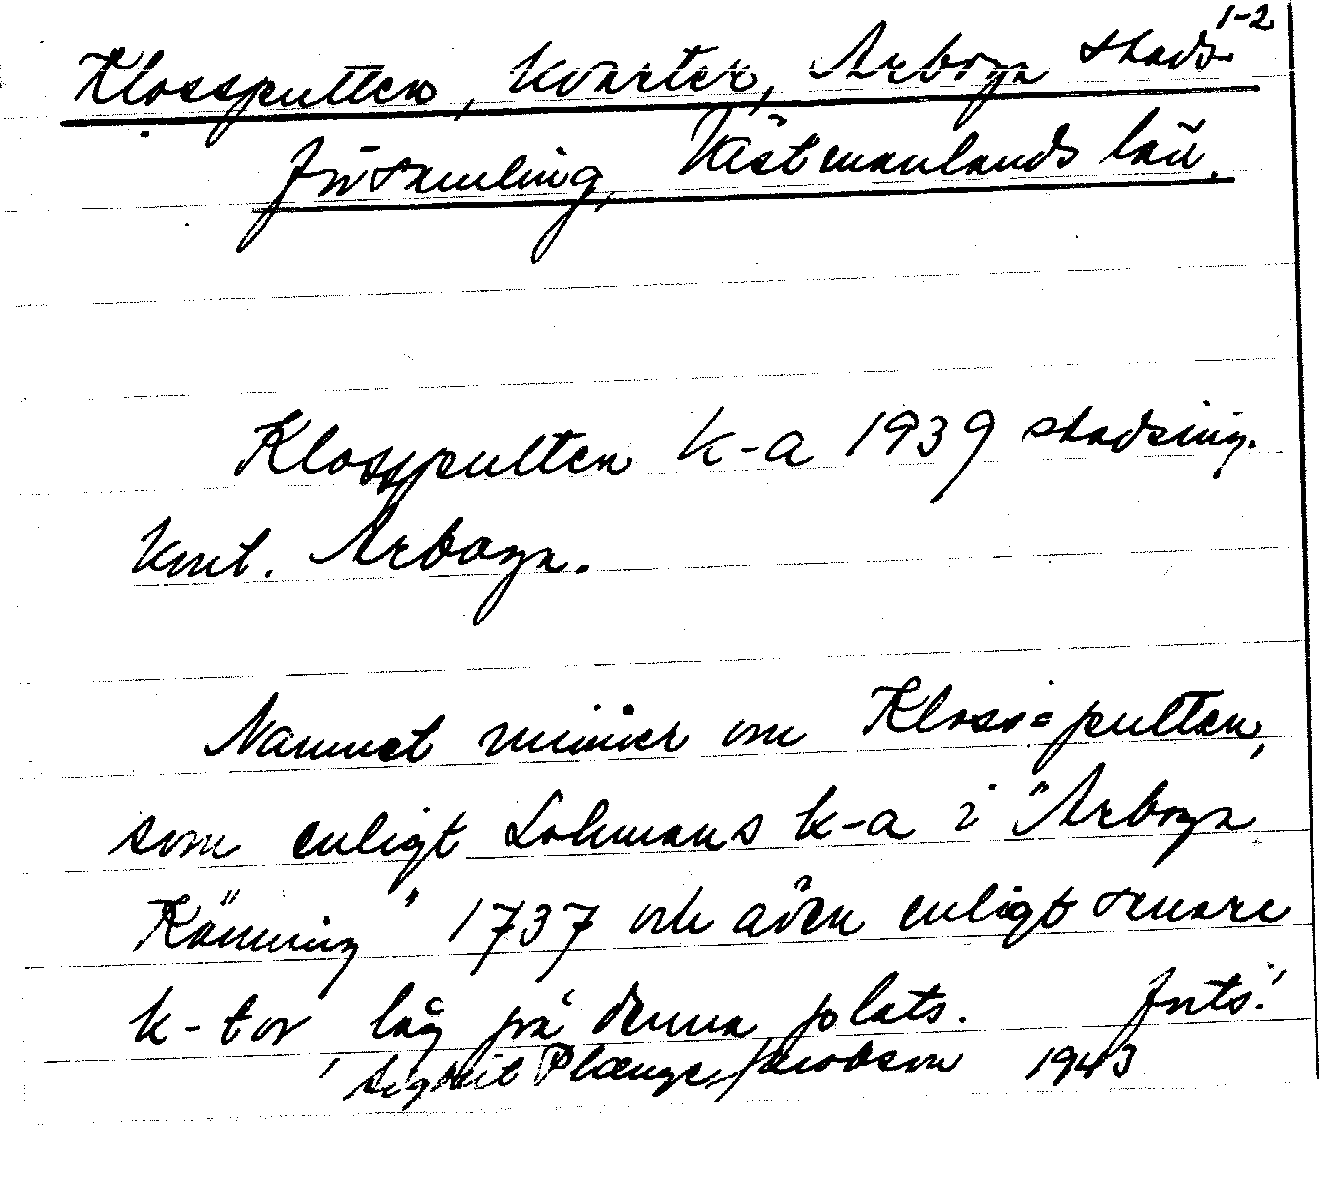 1-2
Klossputten, kvarter, Arboga stads
församling, Västmanlands län.
Klossputten k-a 1939 stadsing.
kont. Arboga.
Namnet minner om Kloss=putten,
som enligt Lohmans k-a i "Arboga
Känning" 1737 och även enligt senare
k-tor låg på denna plats. Forts!
Sigbrit Plænge Jacobson 1943